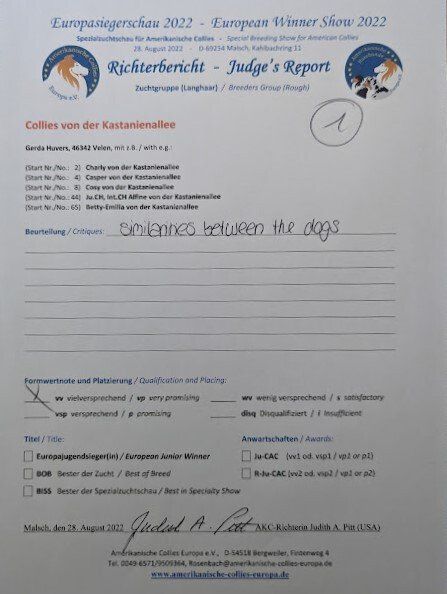 Europasiegerschau 2022 - European Winner Show 2022
Spezialzuchtschau für Amerikanische Collies - Special Breeding Show for American Collies
28. August 2022 - D-69254 Malsch, Kahlbachring 11
Richterbericht - Judge's Report
Zuchtgruppe (Langhaar) / Breeders Group (Rough)
1
Collies von der Kastanienallee
Gerda Huvers, 46342 Velen, mit z.B. / with e.g.:
(Start Nr./No.: 2) Charly von der Kastanienallee
(Start Nr./No.: 4) Casper von der Kastanienallee
(Start Nr./No.: 8) Cosy von der Kastanienallee
(Start Nr./No.: 44) Ju.CH, Int.CH Affine von der Kastanienallee
(Start Nr./No.: 65) Betty-Emilia von der Kastanienallee
Beurteilung / Critiques: similarities between the dogs
Formwertnote und Platzierung / Qualification and Placing:
X vv vielversprechend / vp very promising wv wenig versprechend / s satisfactory
vsp versprechend / p promising disq Disqualifiziert / i Insufficient
Titel / Title: Anwartschaften / Awards:
Europajugendsieger(in) / European Junior Winner Ju-CAC (vv1 od. vsp1 / vp1 or p1)
BOB Bester der Zucht / Best of Breed R-Ju-CAC (vv2 od. vsp2 / vp2 or p2)
BISS Bester der Spezialzuchtschau / Best in Specialty Show
Malsch, den 28. August 2022 Judith A. Pitt AKC-Richterin Judith A. Pitt (USA)
Amerikanische Collies Europa e.V., D-54518 Bergweiler, Fintenweg 4
Tel. 0049-6571/9509364, Rosenbach@amerikanische-collies-europa.de
www.amerikanische-collies-europa.de